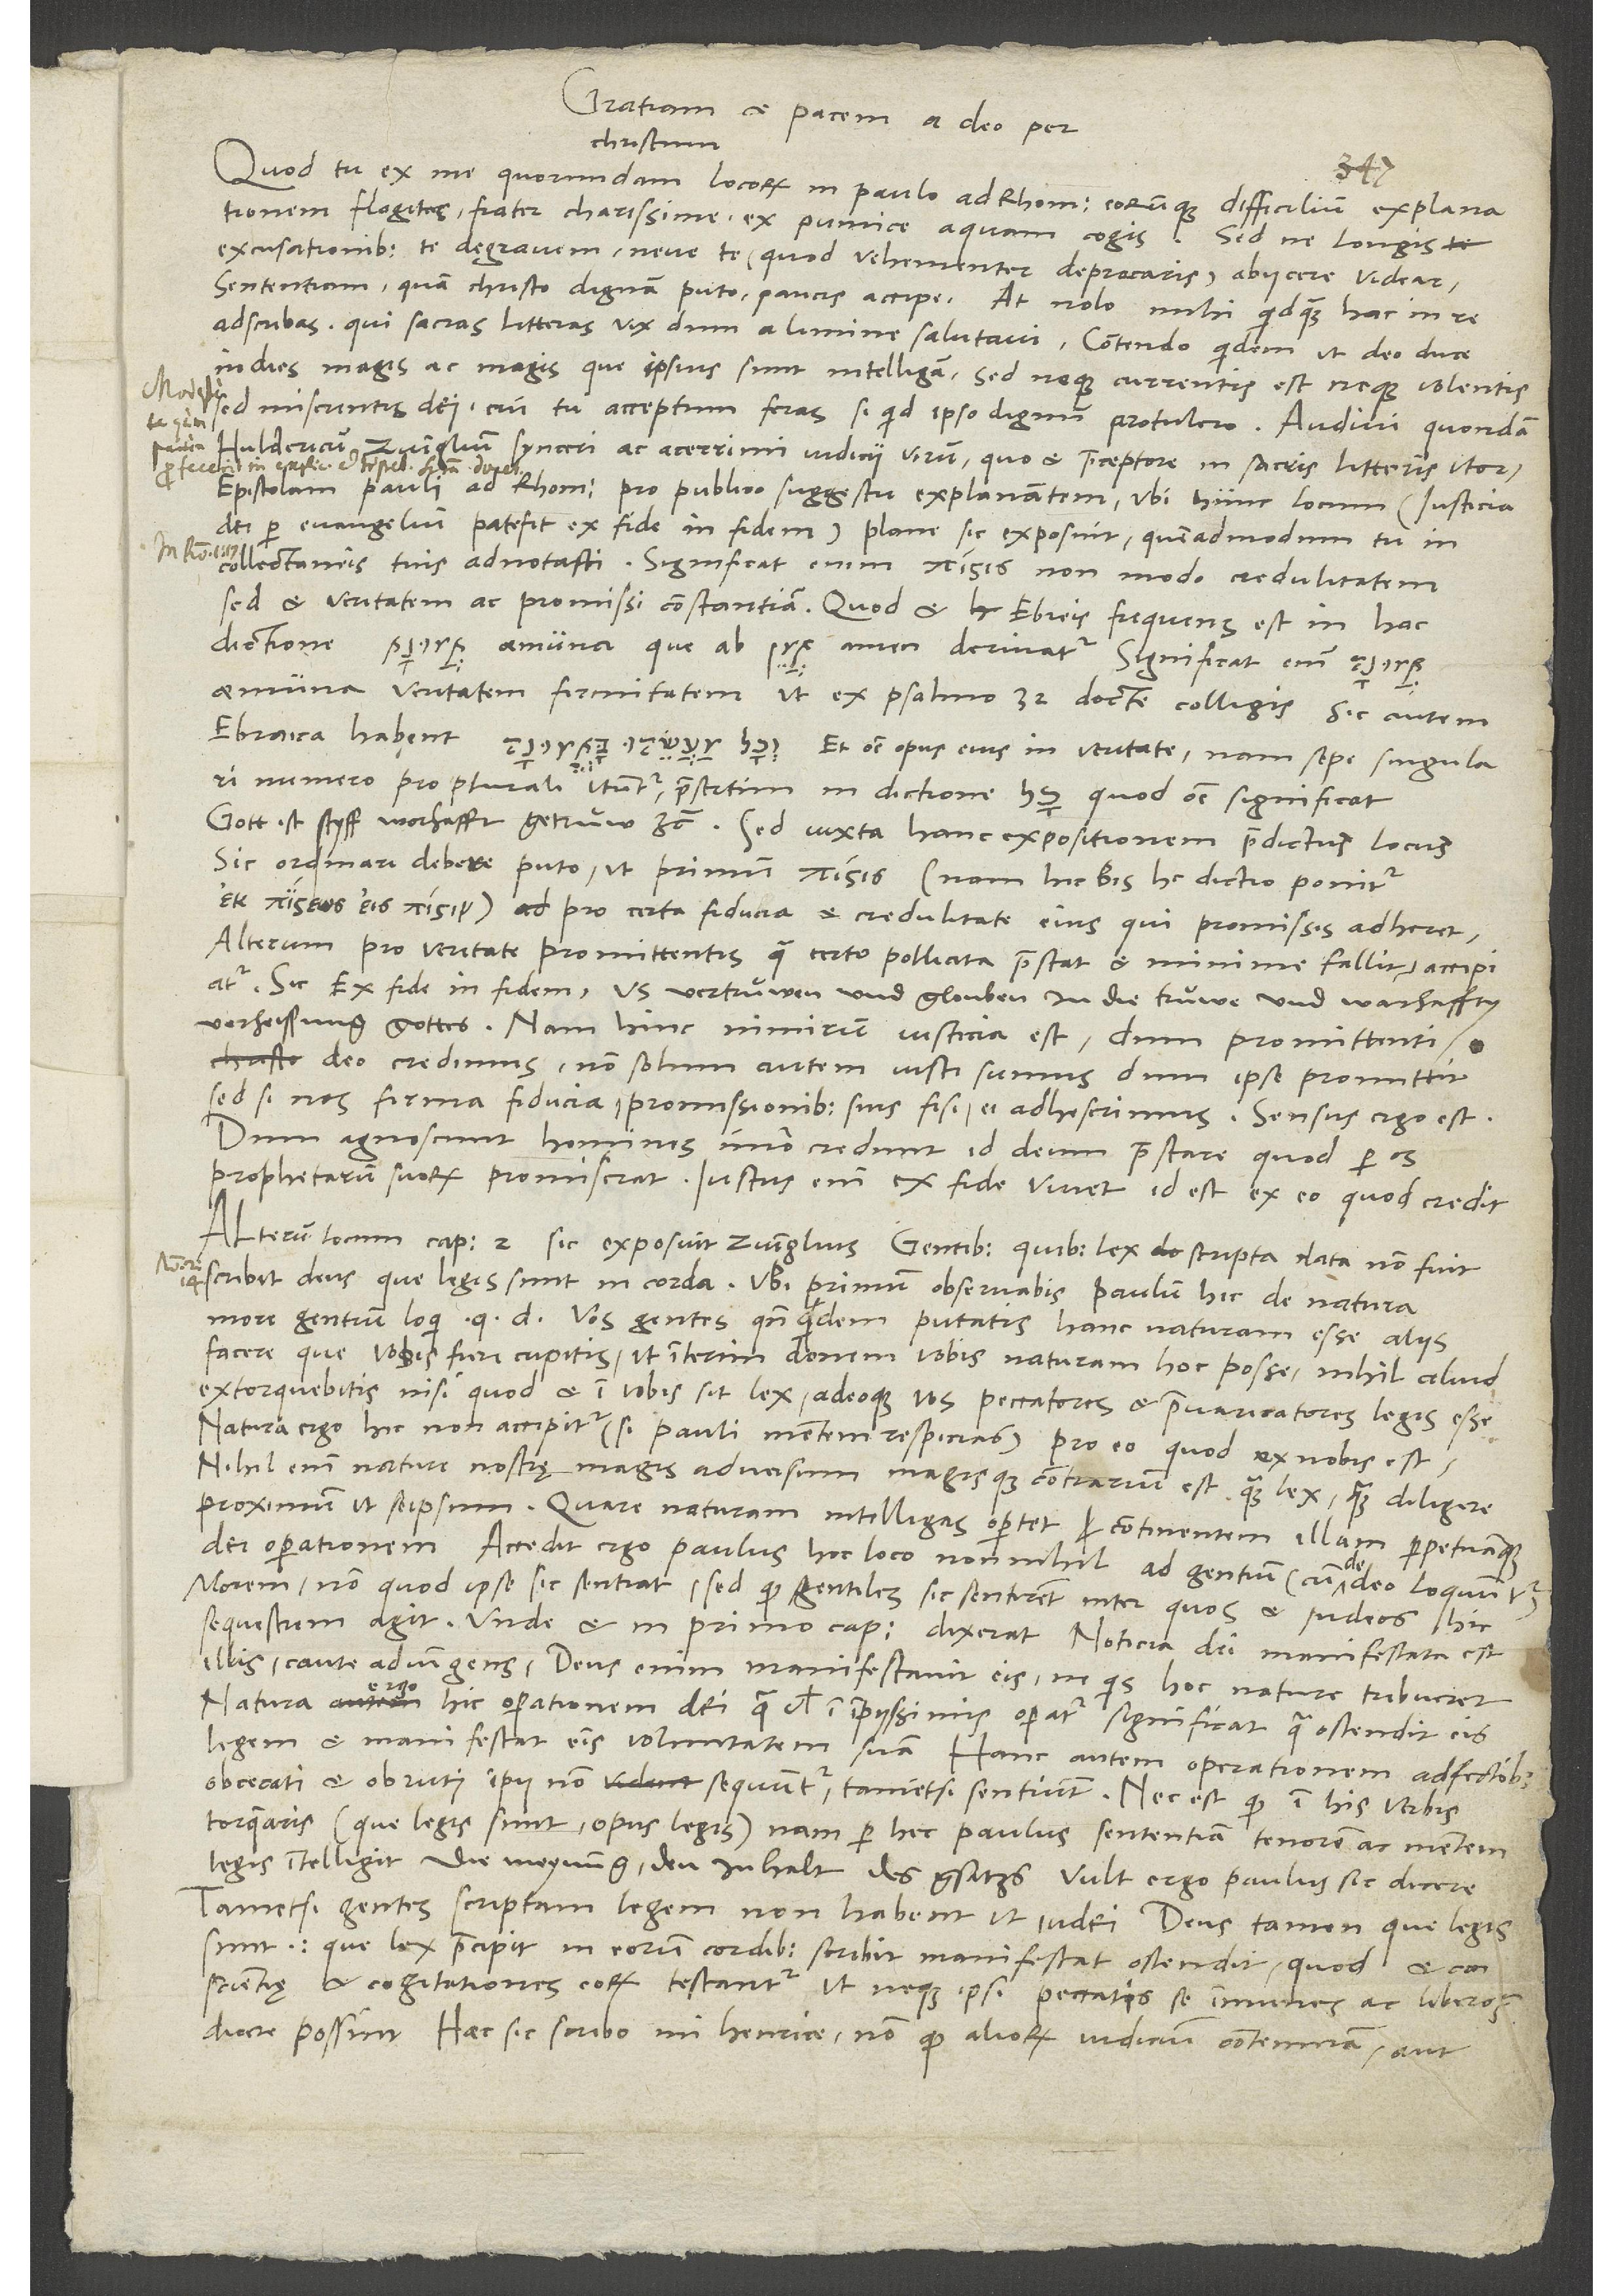 Gratiam et pacem a deo per
christum
347
Quod tu ex me quorundam locorꝝ in paulo ad Rhom: eorūque difficiliū explana
tionem flagitas, frater charissime, ex pumice aquam cogis. Sed ne longis te
excusationib: te degravem, neve te (quod vehementer deprecaris) abiicere videar,
Sententiam, quā christo dignā puto, paucis accipe. At nolo mihi qidq̄ hac in re
adscribas, qui sacras litteras vix dum a limine salutavi. Cōtendo qidem ut deo duce
indies magis ac magis que ipsius sunt intelligā, sed neque currentis est neque volentis
sed miserentis dei, cui tu acceptum feras si qid ipso dignū protulero. Audivi quondā
Huldricū Zuinglium synceri ac acerrimi iudicii virū, quo & p̄ceptore in sacris litteris utor,
Epistolam pauli ad Rhom: pro publico suggestu explanātem, ubi hunc locum (Iusticia
dei p̲ euangeliū patefit ex fide in fidem) plane sic exposuit, quēadmodum tu in
collectaneis tuis adnotasti. Significat enim πίςις non modo credulitatem
sed & veritatem ac promissi cōstantiā. Quod & h Ebreis frequens est in hac
dictione אֱמוּנָה aemüna que ab אָמֵן amen derivatᷣ Significat em̄ אֱמוּנָה
aemüna veritatem firmitatem ut ex psalmo 32 docte colligis Sic autem
Ebraica habent וְכָל מַעֲשֵׂהוּ בֶּאֱמוּנָה Et oē opus eius in veritate, nam sepe singula
ri numero pro plurali utūtᷣ, p̄sertim in dictione כָל quod oē significat
Gott ist styff worhafft getrüw ꝛc. Sed iuxta hanc expositionem p̄dictus locus
Sic ordinari debere puto, ut primū πίςις (nam hic bis hec dictio ponitᷣ
ἐκ πίςεως εἰς πίςιν) ad pro certa fiducia & credulitate eius qui promissis adheret,
Alterum pro veritate promittentis q̄ certo pollicita p̄stat & minime fallit, accipi
atᷣ. Sic Ex fide in fidem, Us vertrüwen und glouben in die trüwe und warhafftig
verheissung gottes. Nam hinc nimirū iusticia est, dum promittenti
christo deo credimus, nō solum autem iusti sumus dum ipse promittit
sed si nos firma fiducia, promissionib: suis fisi, ei adheserimus. Sensus ergo est.
Dum agnoscunt homines imo credunt id deum p̄stare quod p̲ os
prophetarū suorꝝ promiserat. Iustus em̄ ex fide vivet id est ex eo quod credit
ALterū locum cap: 2 sic exposuit Zuinglius Gentib: quib: lex do scripta data nō fuit
scribit deus que legis sunt in corda. Ubi primū observabis paulū hic de natura
more gentiū loqi .q.d. Vos gentes qn̄qidem putatis hanc naturam esse aliis
facere que vobis fieri cupitis, ut īterim donem vobis naturam hoc posse, nihil aliud
extorquebitis nisi quod & ī vobis sit lex, adeoque vos peccatores & p̄varicatores legis esse
Natura ergo hic non accipitᷣ (si pauli mētem respicias) pro eo quod ex nobis est,
Nihil em̄ nature nostrę magis adversum magisque cōtrariū est q̄ lex, q̄ diligere
proximū ut seipsum. Quare naturam intelligas op̲tet continentem illam p̲petuāque
dei op̲ationem Accedit ergo paulus hoc loco nonnihil ad gentiū (cū de deo loquūtᷣ)
Morem, nō quod ipse sic sentiat, sed qꝫ gentiles sic sentirēt inter quos & iudeos hic
sequestrem agit. Unde & in primo cap: dixerat Noticia dei manifestata est
illis, caute adiūgens, Deus enim manifestavit eis, ne qis hoc nature tribueret
Natura autem ergo hic op̲ationem dei q̄ vel ī īpyssimis op̲atᷣ significat q̄ ostendit eis
legem & manifestat eis voluntatem suā Hanc autem operationem adfectib:
obcecati & obruti ipii nō vidunt sequūtᷣ, tametsi sentiunt. Nec est qꝫ ī his verbis
torqearis (que legis sunt, opus legis) nam p̲ hec paulus sententiā tenorē ac mētem
legis ītelligit die meynung, den Inhalt des gsatzs Vult ergo paulus sic dicere
Tametsi gentes scriptam legem non habent ut iudei Deus tamen que legis
sunt .i: que lex p̄cipit in eorū cordib: scribit manifestat ostendit, quod & con
scientię & cogitationes eorꝝ testantᷣ Ut neque ipsi peccatis se īmunes ac liberos
dicere possint Haec sic scribo mi henrice, nō qꝫ aliorꝝ iudiciū cōtemnā, aut